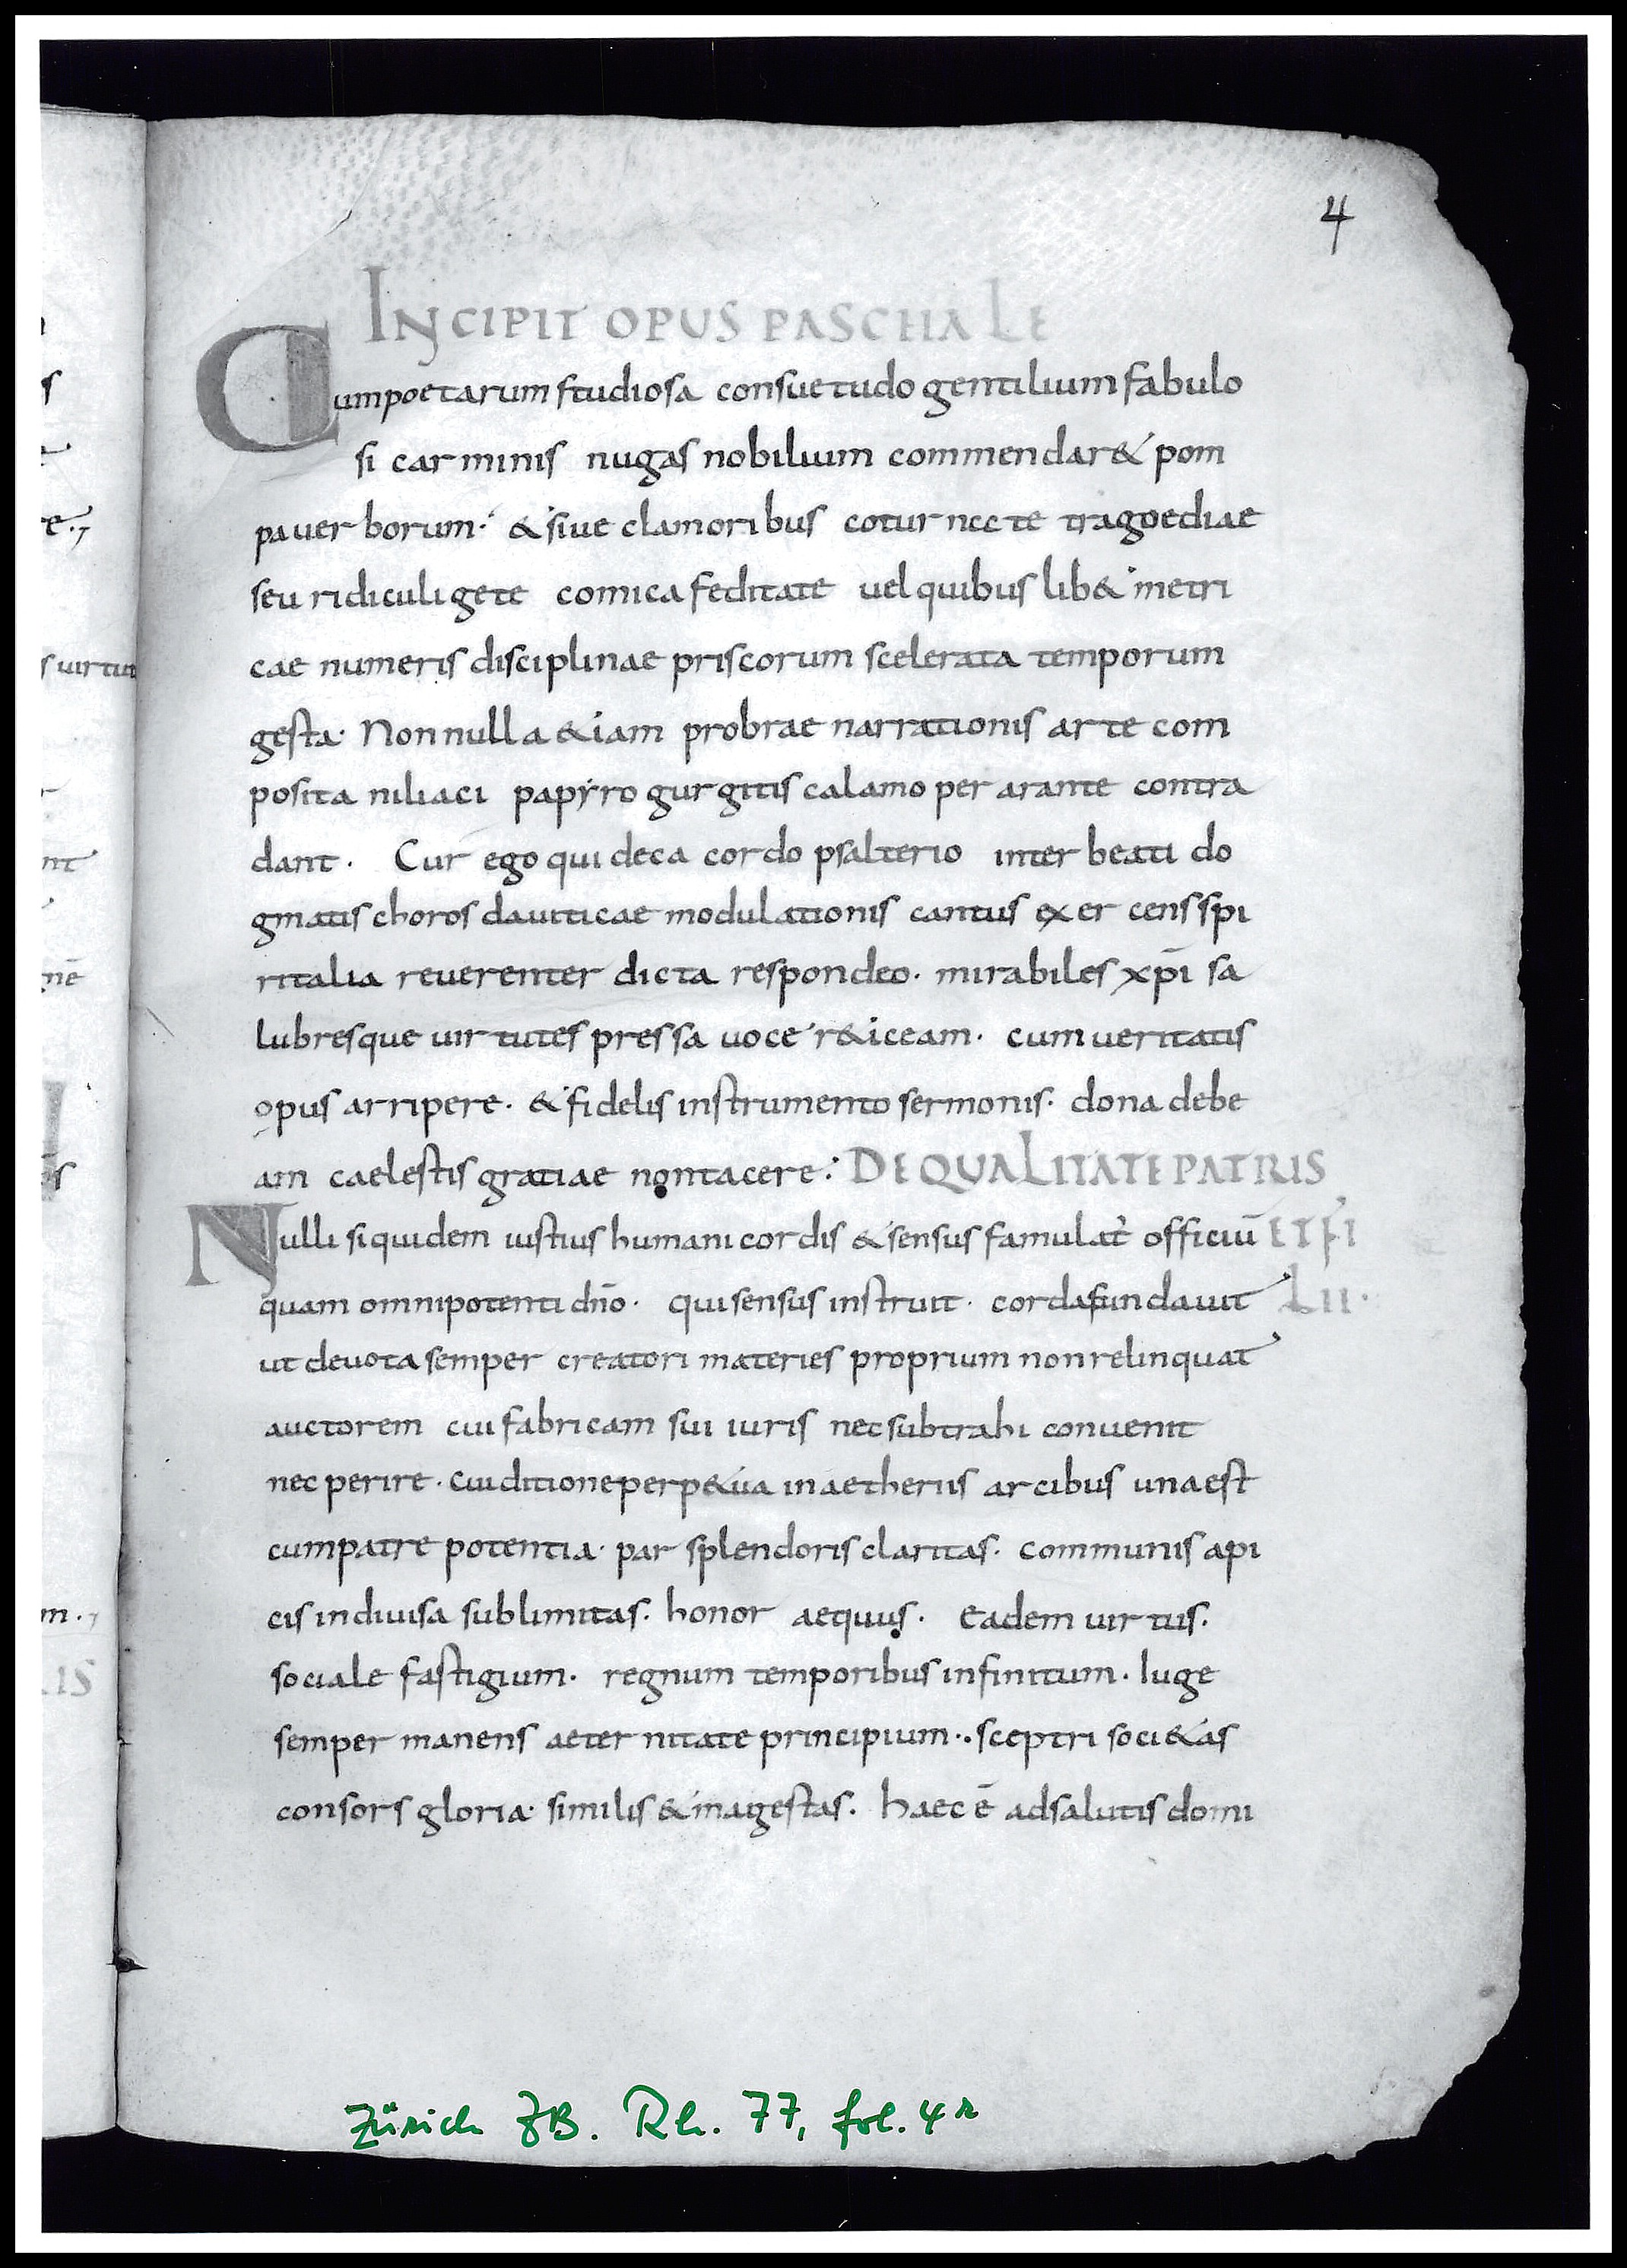 4
INCIPIT OPUS PASCHALE
Cum poetarum studiosa consuetudo gentilium fabulo
si carminis nugas nobilium commendar& pom
pa uerborum. & siue clamoribus coturnec te tragoediae
seu ridiculi gete comica feditate uel quibuslib& metri
cae numeris disciplinae priscorum scelerata temporum
gesta. Non nulla &iam probrae narrationis arte com
posita niliaci papyro gurgitis calamo perarante contra
dant. Cur ego qui decacordo psalterio inter beati do
gmatis choros dauiticae modulationis cantus exercens spi
ritalia reuerenter dicta respondeo. mirabiles xp̄i sa
lubresque uirtutes pressa uoce r&iceam. cum ueritatis
opus arripere. & fidelis instrumento sermonis. dona debe
am caelestis gratiae non tacere: DE QUALITATE PATRIS
Nulli siquidem iustius humani cordis & sensus famulat᷑ officiū ET FI
quam omnipotenti dn̄o. qui sensus instruit. corda fundauit LII.
ut deuota semper creatori materies proprium non relinquat
auctorem cui fabricam sui iuris nec subtrahi conuenit
nec perire. cui ditione perp&ua in aetheriis arcibus una est
cum patre potentia. par splendoris claritas. communis api
cis indiuisa sublimitas. honor aequus. eadem uirtus.
sociale fastigium. regnum temporibus infinitum. luge
semper manens aeternitate principium.. sceptri soci&as
consors gloria. similis & magestas. haec ē ad salutis domi
s uirtut
e.,
nt
nē
m.,
LIS
Zürich ZB. Rh. 77, fol. 4r